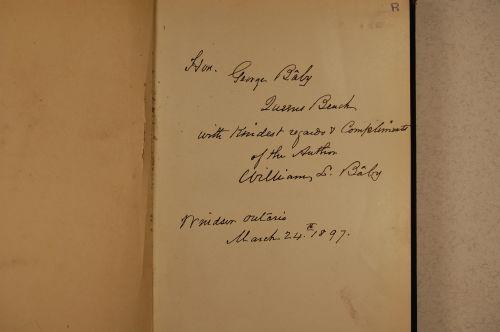 R
Hon. George Bâby
Queens Bench
with Kindest regards & Compliments
of the Author
William L. Bâby
Windsor Ontario
March 24th 1897.